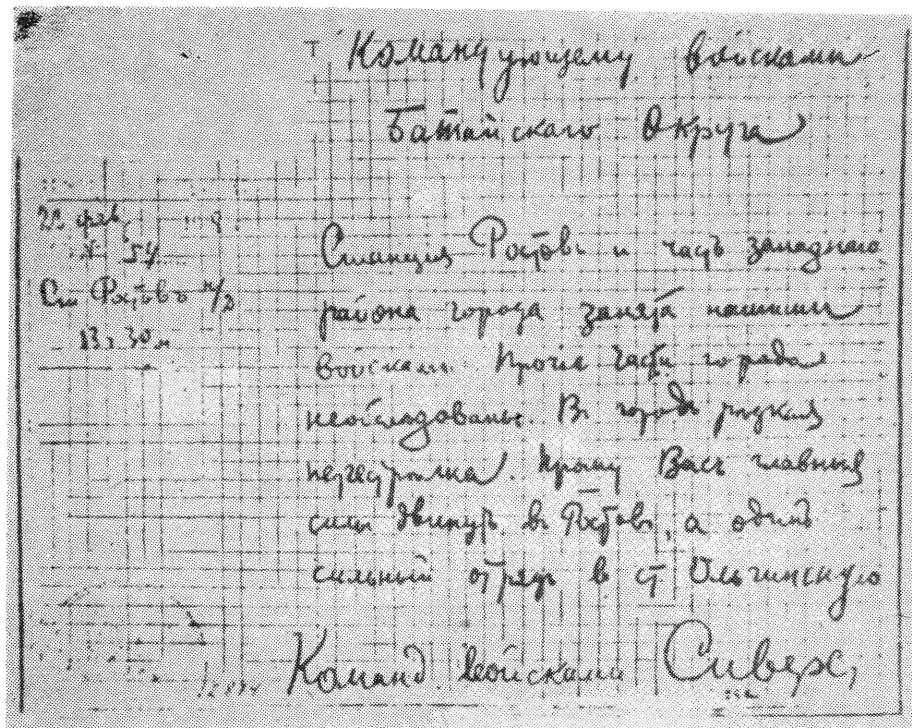 Командующему войсками
Батайскаго Округа
22 фев. 8
№ 54
Ст Ростовъ н/Д
13 ч 30 м
Станция Ростовъ и часть западнаго
района города занята нашими
войсками. Прочие части города
необследованы. Въ городѣ редкая
перестрелка. Прошу Васъ главныя
силы двинуть въ Ростовъ, а один
сильный отрядъ в ст Ольгинскую
Команд. войсками Сиверс